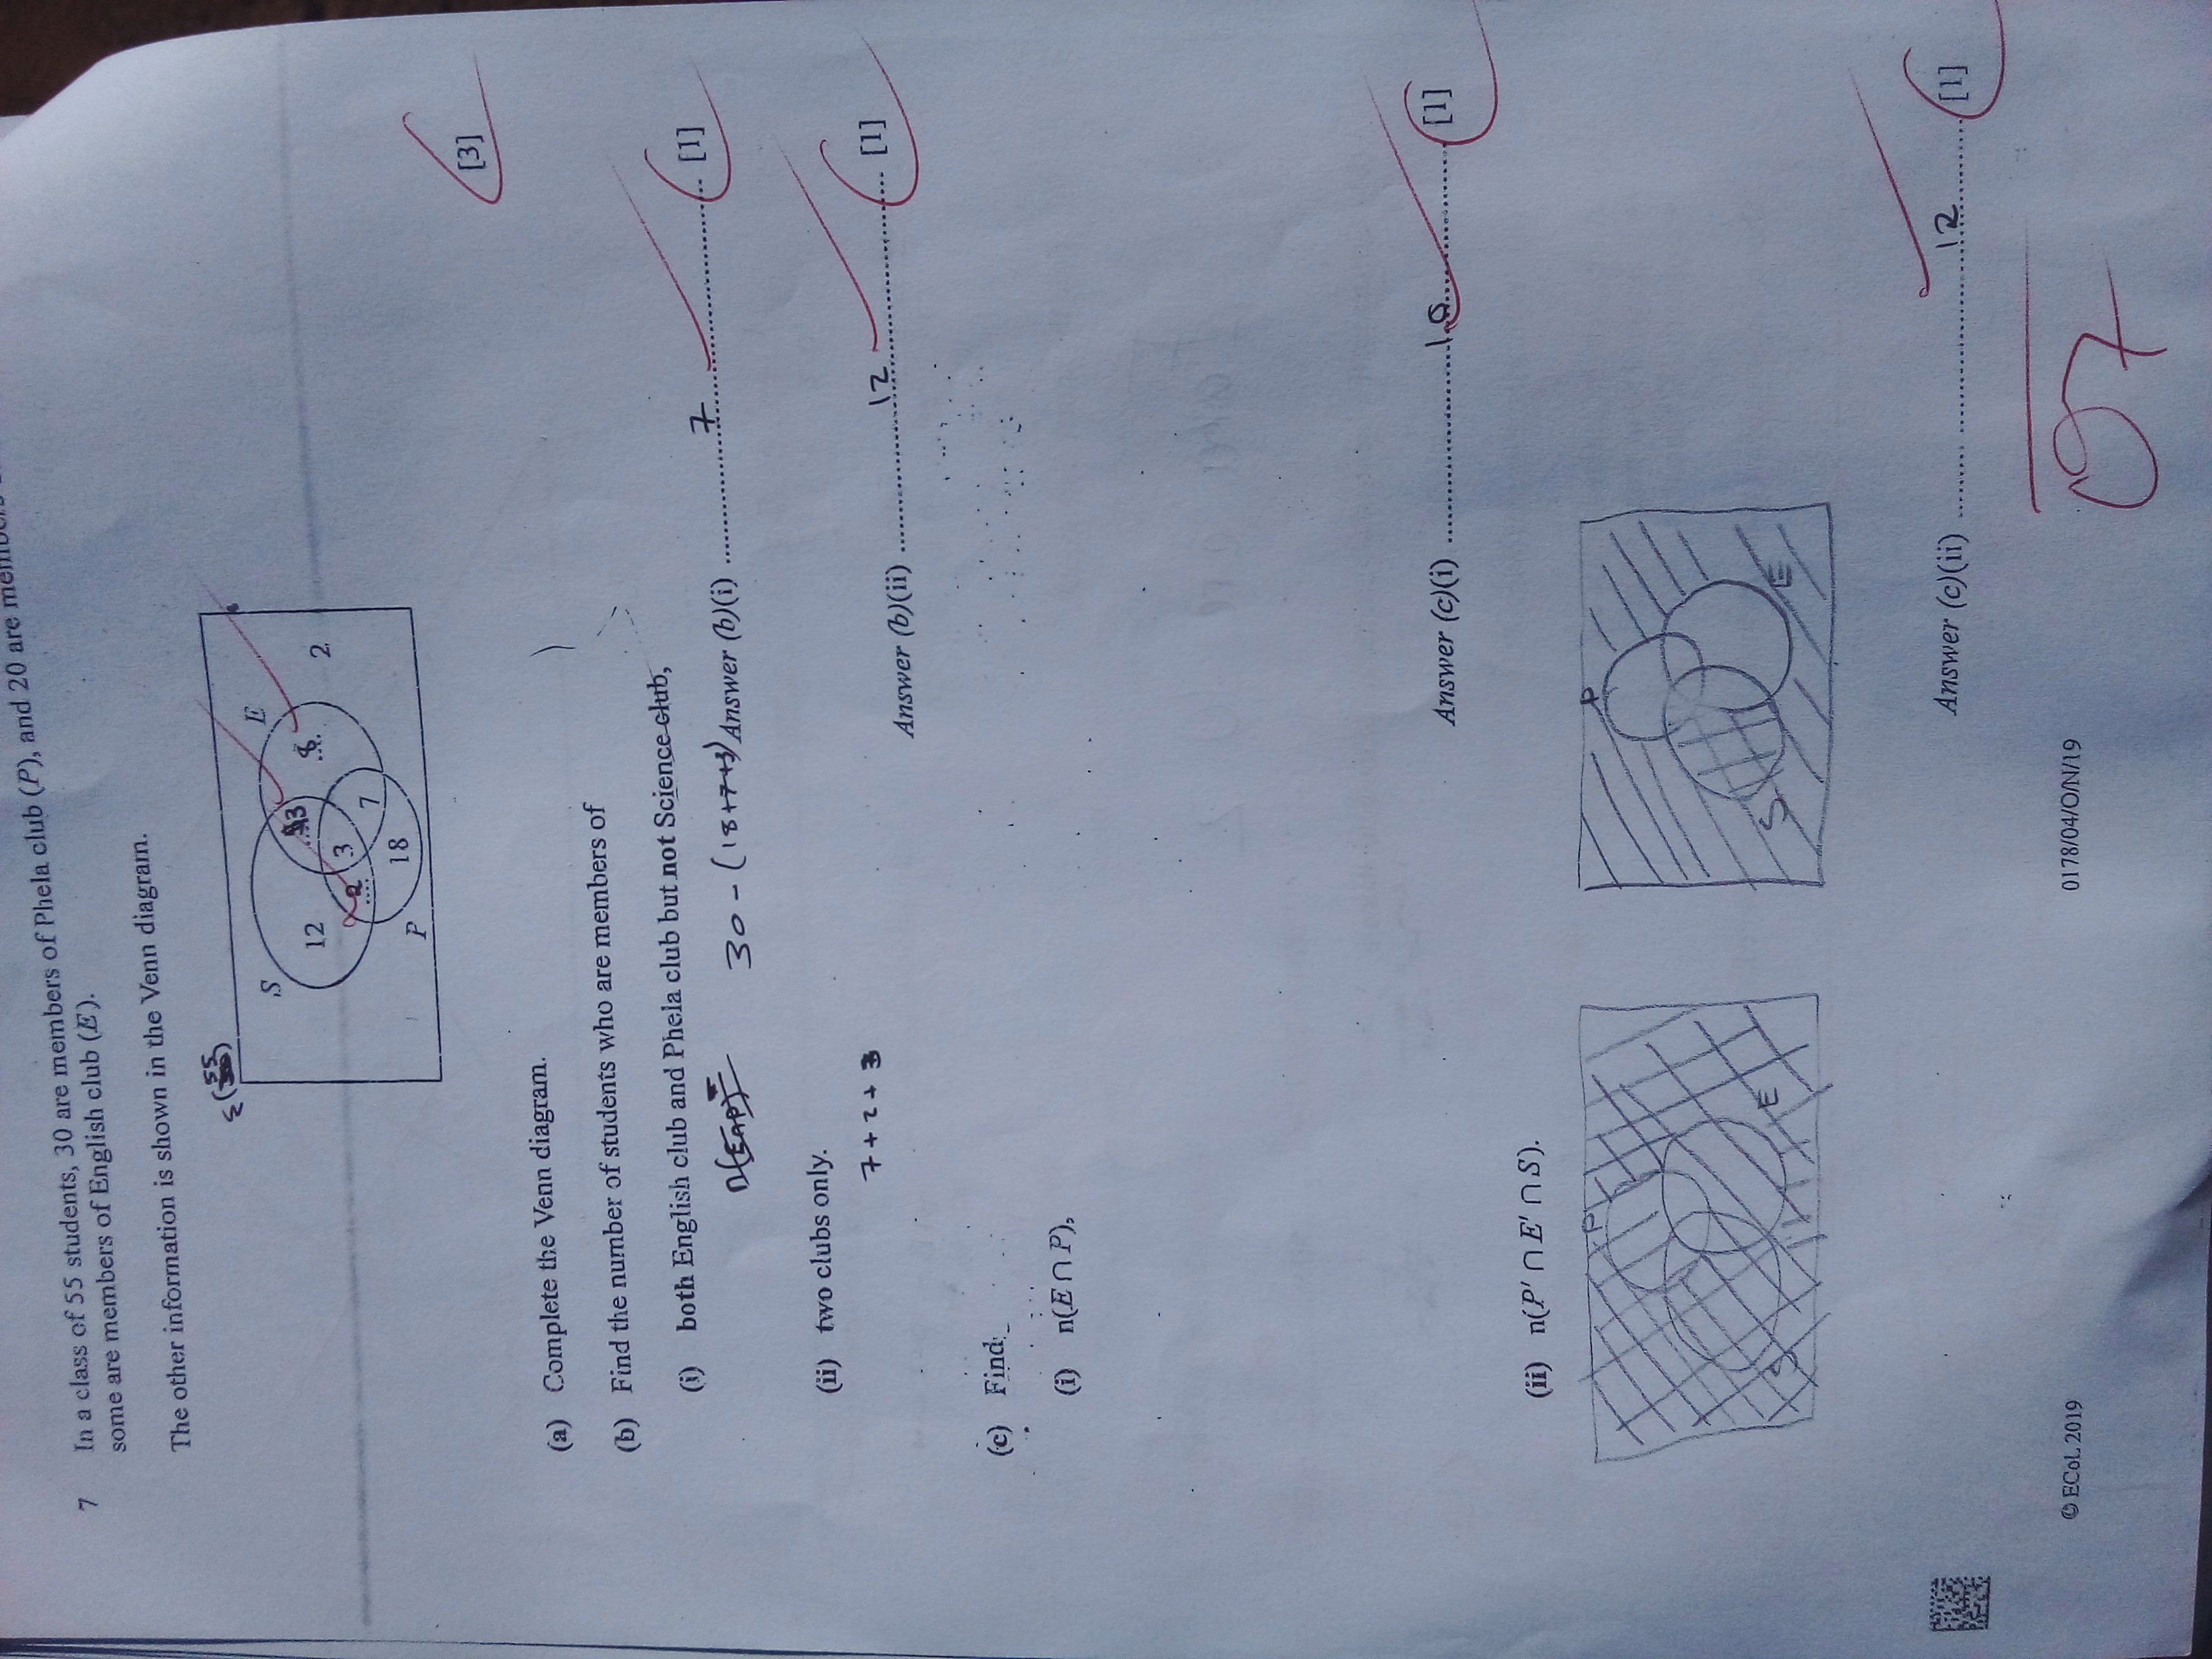 7 In a class of 55 students, 30 are members of Phela club (P), and 20 are members
some are members of English club (E).
The other information is shown in the Venn diagram.
ξ(55)
S
E
12
3
2
2
3
7
18
P
[3]
(a) Complete the Venn diagram.
(b) Find the number of students who are members of
(i) both English club and Phela club but not Science club,
n(E∩P)
30 - (18+7+3) Answer (b)(i) 7 [1]
(ii) two clubs only.
7 + 2 + 3
Answer (b)(ii) 12 [1]
(c) Find:
(i) n(E ∩ P),
Answer (c)(i) 10 [1]
(ii) n(P' ∩ E' ∩ S).
P
P
S
E
S
E
Answer (c)(ii) 12 [1]
© ECoL 2019
0178/04/O/N/19
07